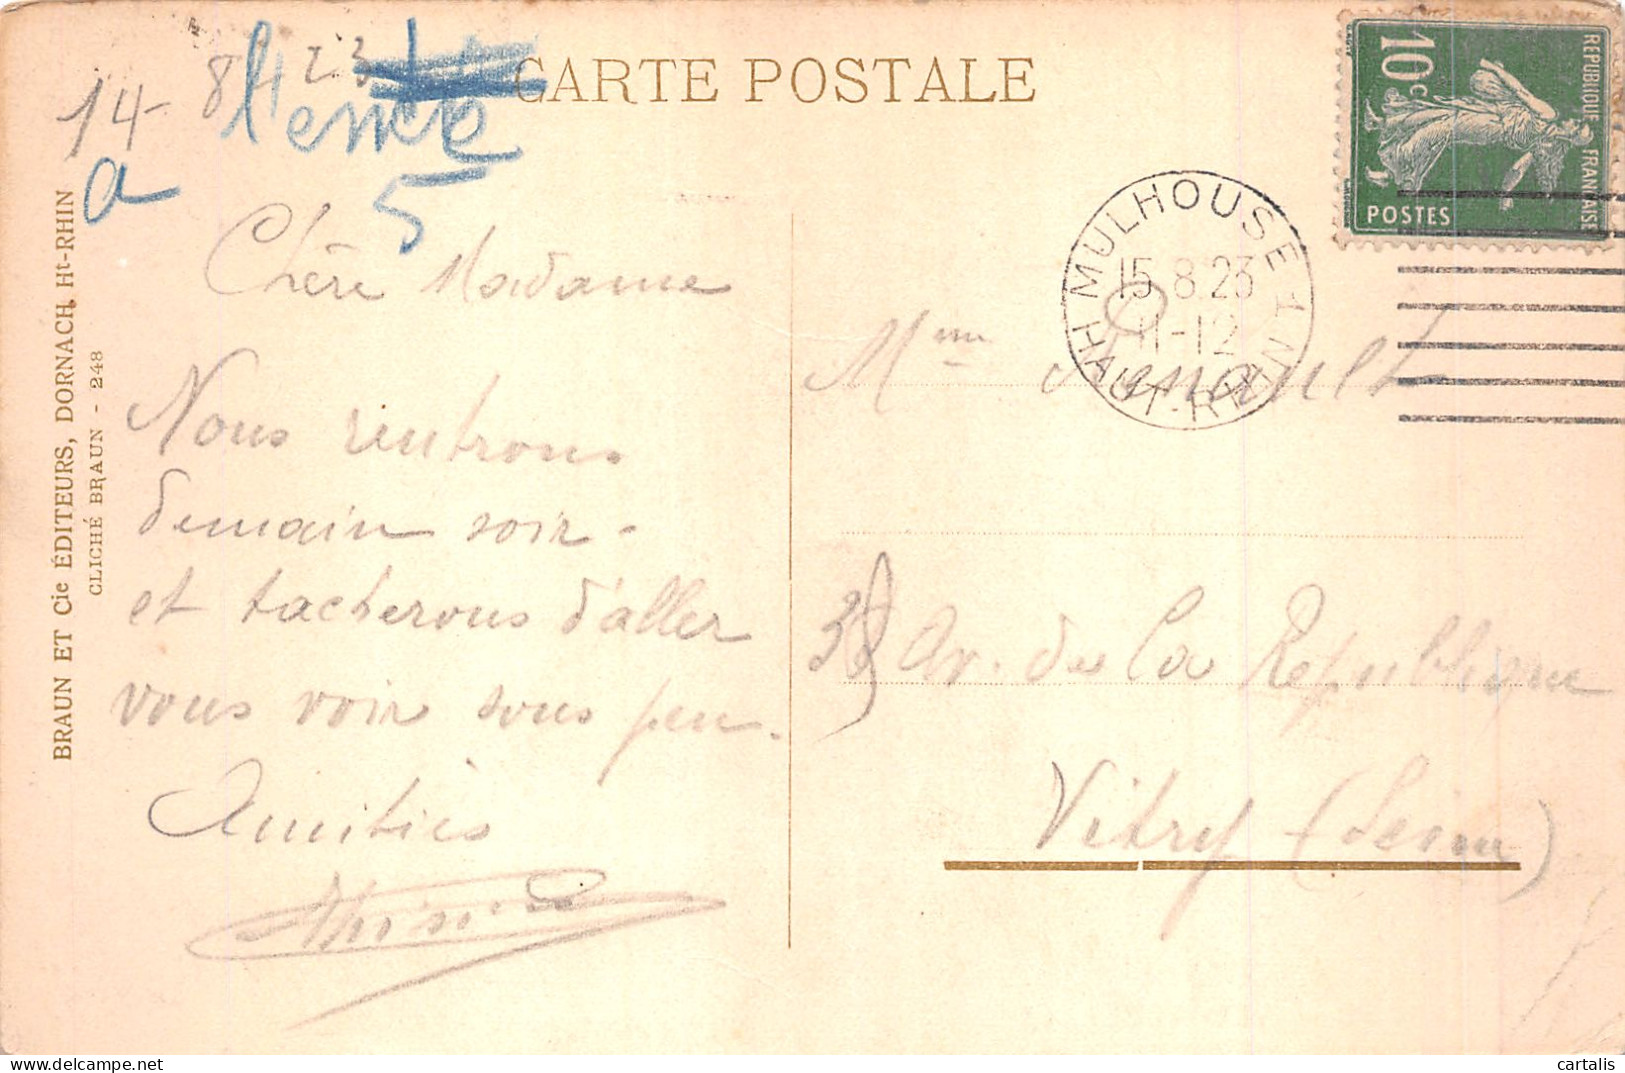 CARTE POSTALE
14-
8
23
a
5
BRAUN ET Cie ÉDITEURS, DORNACH, Ht-RHIN
CLICHÉ BRAUN - 248
Chère Madame
Nous rentrons
demain soir -
et tacherons d'aller
vous voir sous peu.
Amitiés
REPUBLIQUE FRANÇAISE
10c
POSTES
MULHOUSE 1
15 8 23
11-12
HAUT-RHIN
Mme Renault
Av. de La Republique
Vitry (Seine)
cartalis